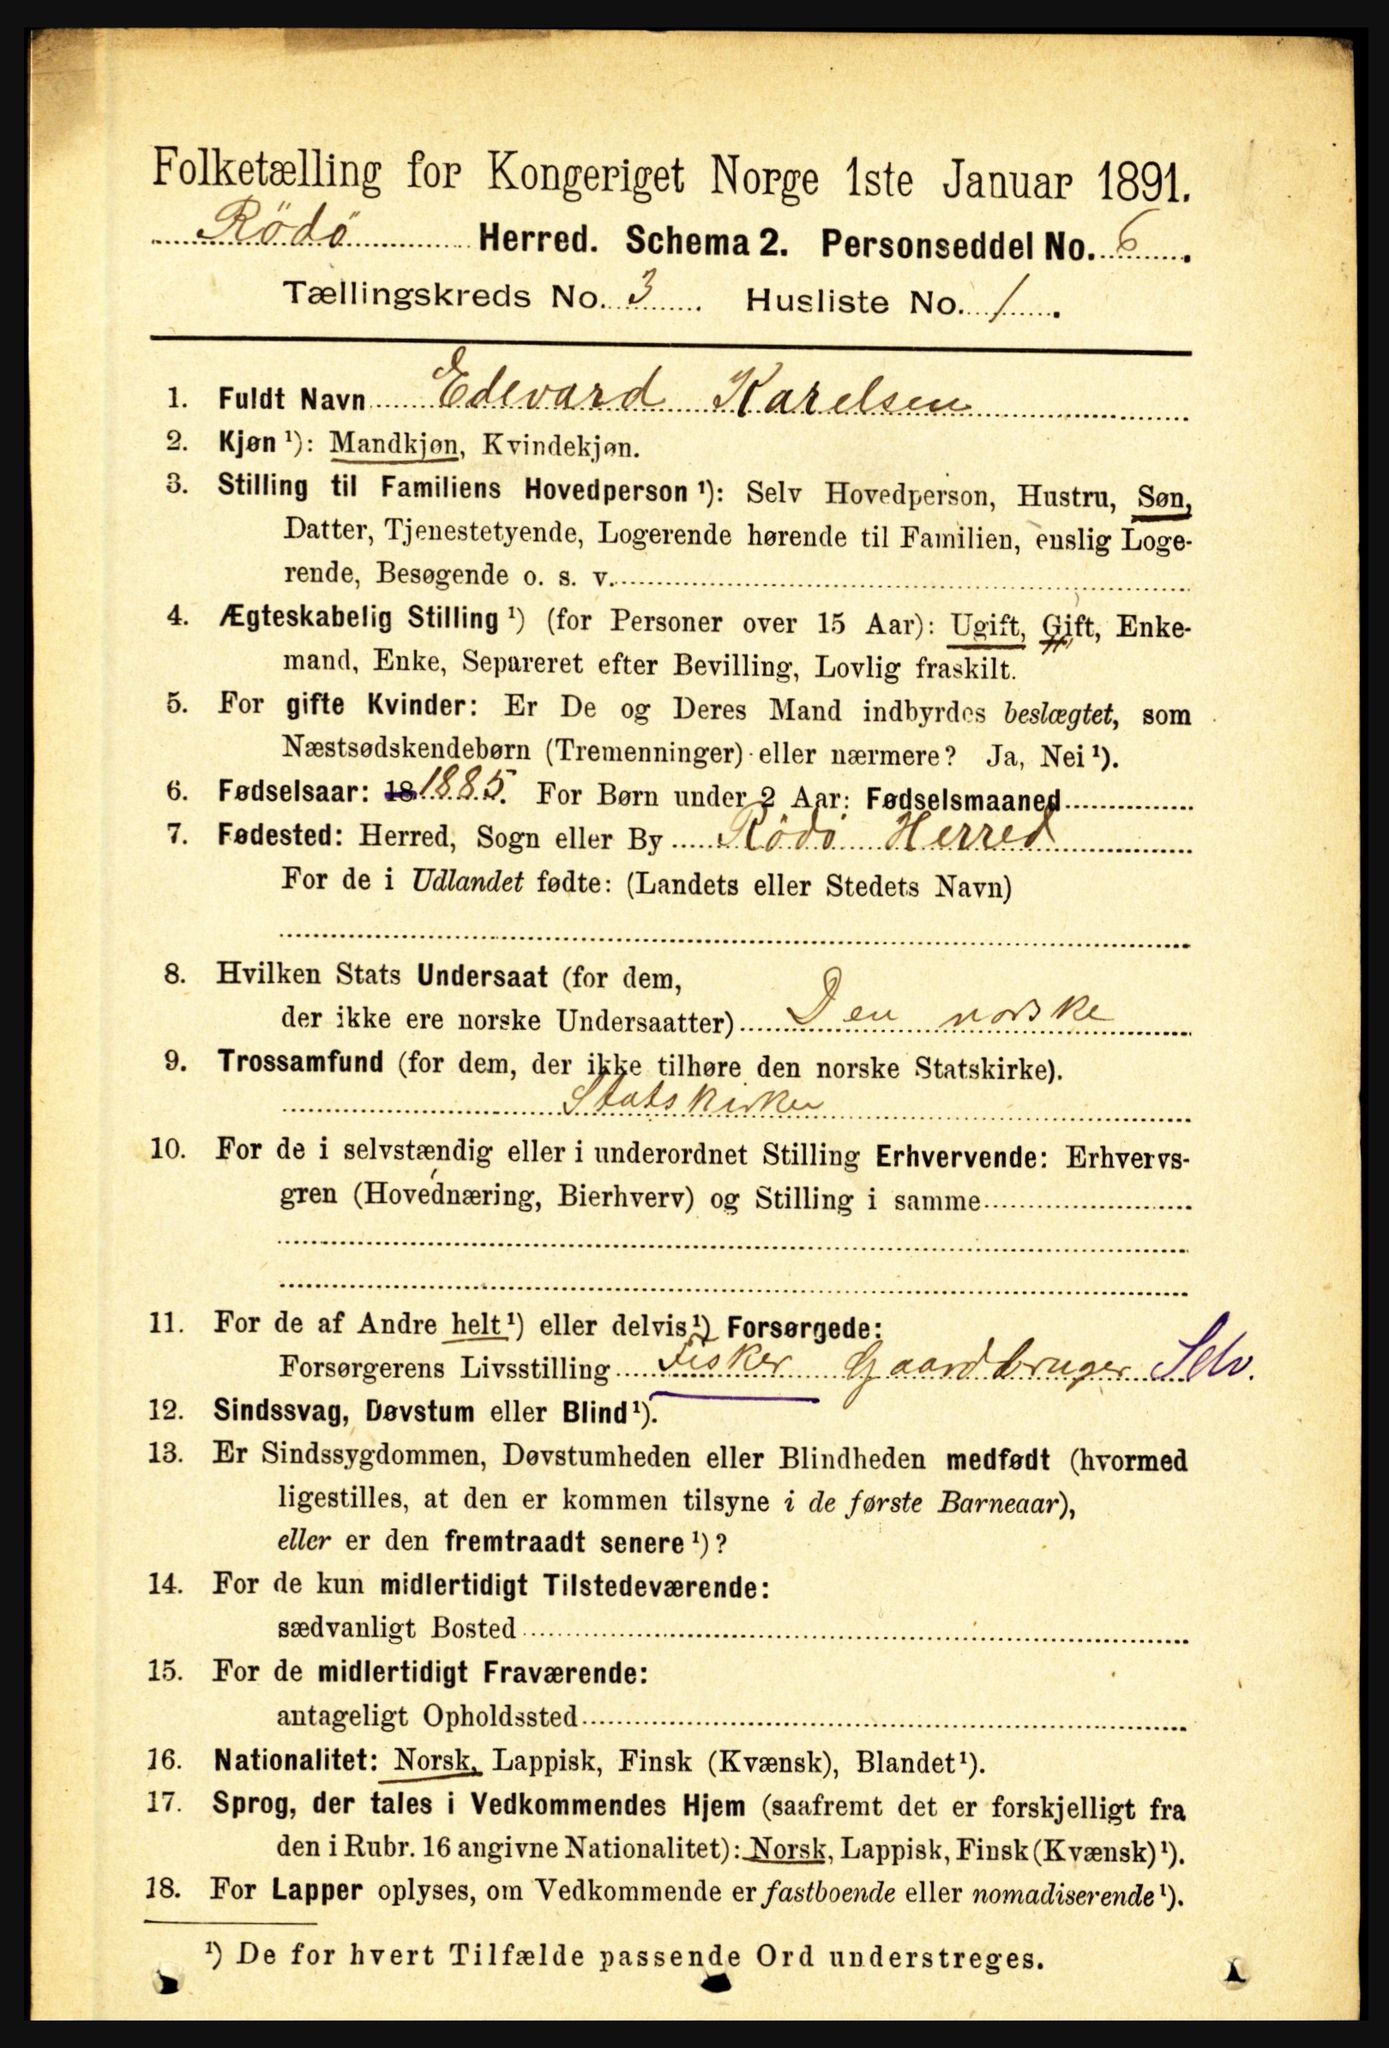 Folketælling for Kongeriget Norge 1ste Januar 1891.
Rödö Herred. Schema 2. Personseddel No. 6.
Tællingskreds No. 3 Husliste No. 1.
1. Fuldt Navn Edevard Karelsen
2. Kjøn ¹): Mandkjøn, Kvindekjøn.
3. Stilling til Familiens Hovedperson ¹): Selv Hovedperson, Hustru, Søn,
Datter, Tjenestetyende, Logerende hørende til Familien, enslig Loge-
rende, Besøgende o. s. v.
4. Ægteskabelig Stilling ¹) (for Personer over 15 Aar): Ugift, Gift, Enke-
mand, Enke, Separeret efter Bevilling, Lovlig fraskilt.
5. For gifte Kvinder: Er De og Deres Mand indbyrdes beslægtet, som
Næstsødskendebørn (Tremenninger) eller nærmere? Ja, Nei ¹).
6. Fødselsaar: 18 1885. For Børn under 2 Aar: Fødselsmaaned
7. Fødested: Herred, Sogn eller By Rödö Herred
For de i Udlandet fødte: (Landets eller Stedets Navn)
8. Hvilken Stats Undersaat (for dem,
der ikke ere norske Undersaatter) Den norske
9. Trossamfund (for dem, der ikke tilhøre den norske Statskirke).
Statskirken
10. For de i selvstændig eller i underordnet Stilling Erhvervende: Erhvervs-
gren (Hovednæring, Bierhverv) og Stilling i samme
11. For de af Andre helt ¹) eller delvis ¹) Forsørgede:
Forsørgerens Livsstilling Fisker Gaardbruger Selv.
12. Sindssvag, Døvstum eller Blind ¹).
13. Er Sindssygdommen, Døvstumheden eller Blindheden medfødt (hvormed
ligestilles, at den er kommen tilsyne i de første Barneaar),
eller er den fremtraadt senere ¹)?
14. For de kun midlertidigt Tilstedeværende:
sædvanligt Bosted
15. For de midlertidigt Fraværende:
antageligt Opholdssted
16. Nationalitet: Norsk, Lappisk, Finsk (Kvænsk), Blandet ¹).
17. Sprog, der tales i Vedkommendes Hjem (saafremt det er forskjelligt fra
den i Rubr. 16 angivne Nationalitet): Norsk, Lappisk, Finsk (Kvænsk) ¹).
18. For Lapper oplyses, om Vedkommende er fastboende eller nomadiserende ¹).
¹) De for hvert Tilfælde passende Ord understreges.